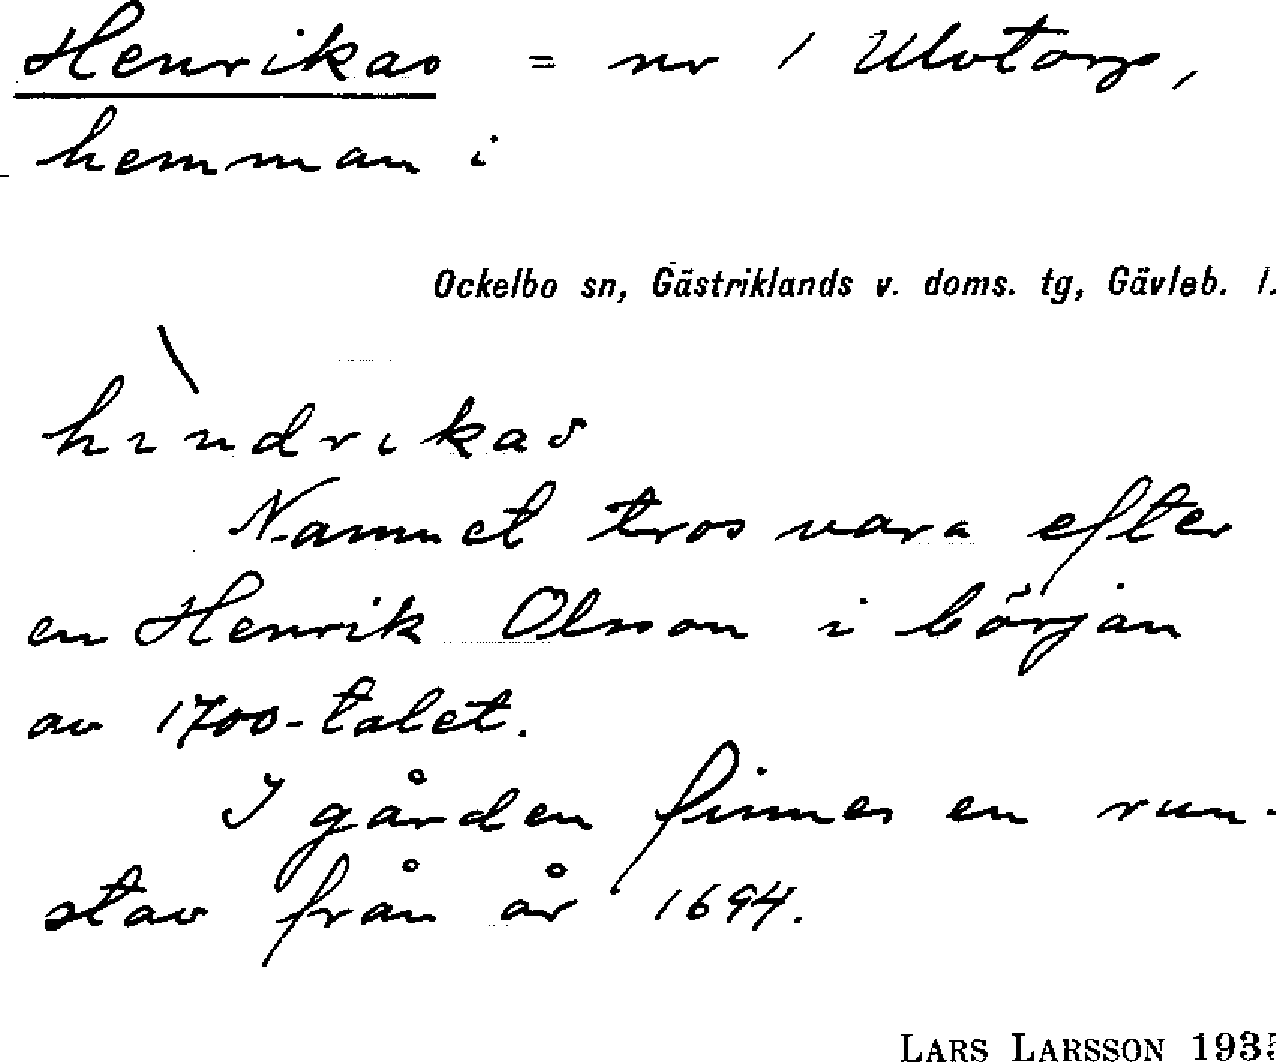 Henrikas = nr 1 Ulvtorp,
hemman i
Ockelbo sn, Gästriklands v. doms. tg, Gävleb. l.
hìndrikas
Namnet tros vara efter
en Henrik Olsson i början
av 1700-talet.
I gården finnes en run-
stav från år 1694.
LARS LARSSON 1935